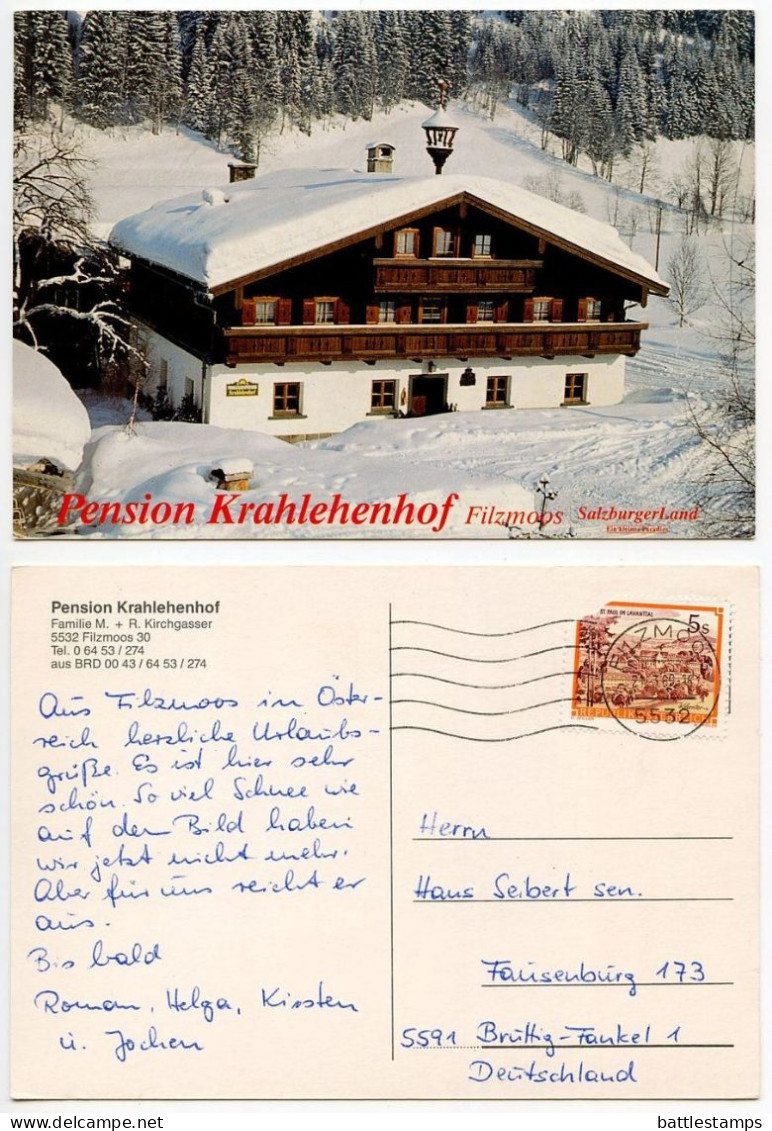 Pension Krahlehenhof Filzmoos SalzburgerLand
Ein kleines Paradies
Pension Krahlehenhof
Familie M. + R. Kirchgasser
5532 Filzmoos 30
Tel. 0 64 53 / 274
aus BRD 00 43 / 64 53 / 274
Aus Filzmoos in Öster-
reich herzliche Urlaubs-
grüße. Es ist hier sehr
schön. So viel Schnee wie
auf dem Bild haben
wir jetzt nicht mehr.
Aber für uns reicht er
aus.
Bis bald
Roman, Helga, Kirsten
u. Jochen
ST. PAUL IM LAVANTTAL
5s
REPUBLIK
FILZMOOS
5532
Herrn
Hans Seibert sen.
Fausenburg 173
5591 Bruttig-Fankel 1
Deutschland
battlestamps